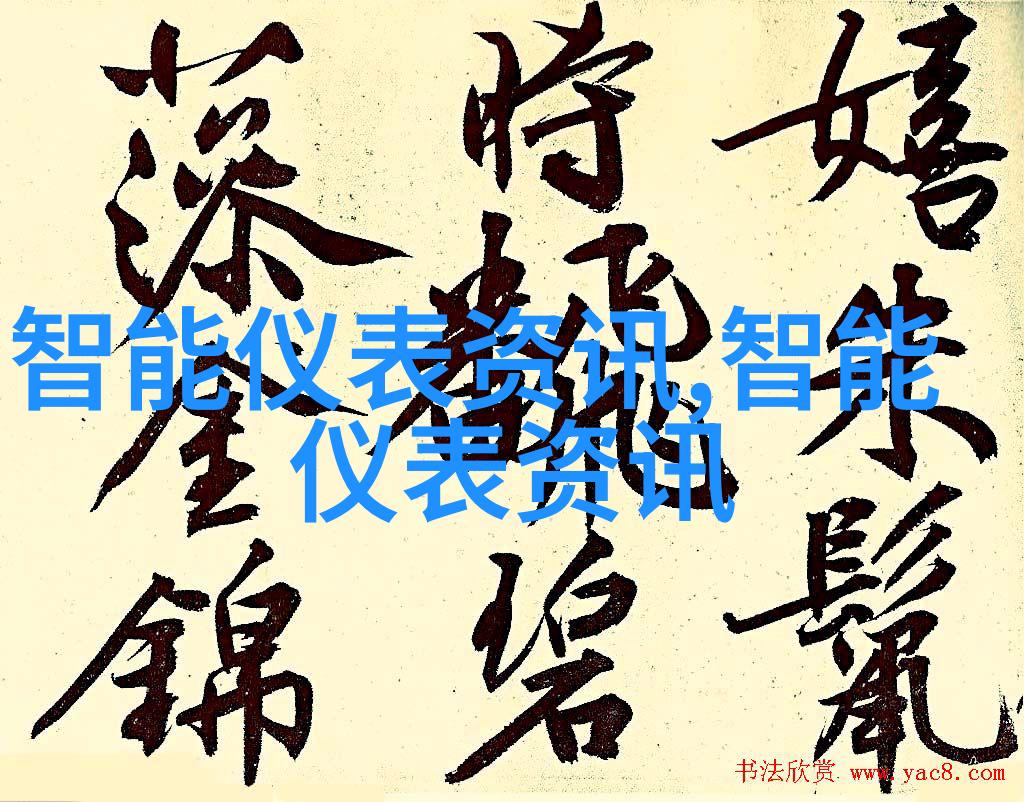 嬉朱鬣
時飜碧
藻全錦
智能仪表资讯,智能
仪表资讯
书法欣赏 www.yac8.com